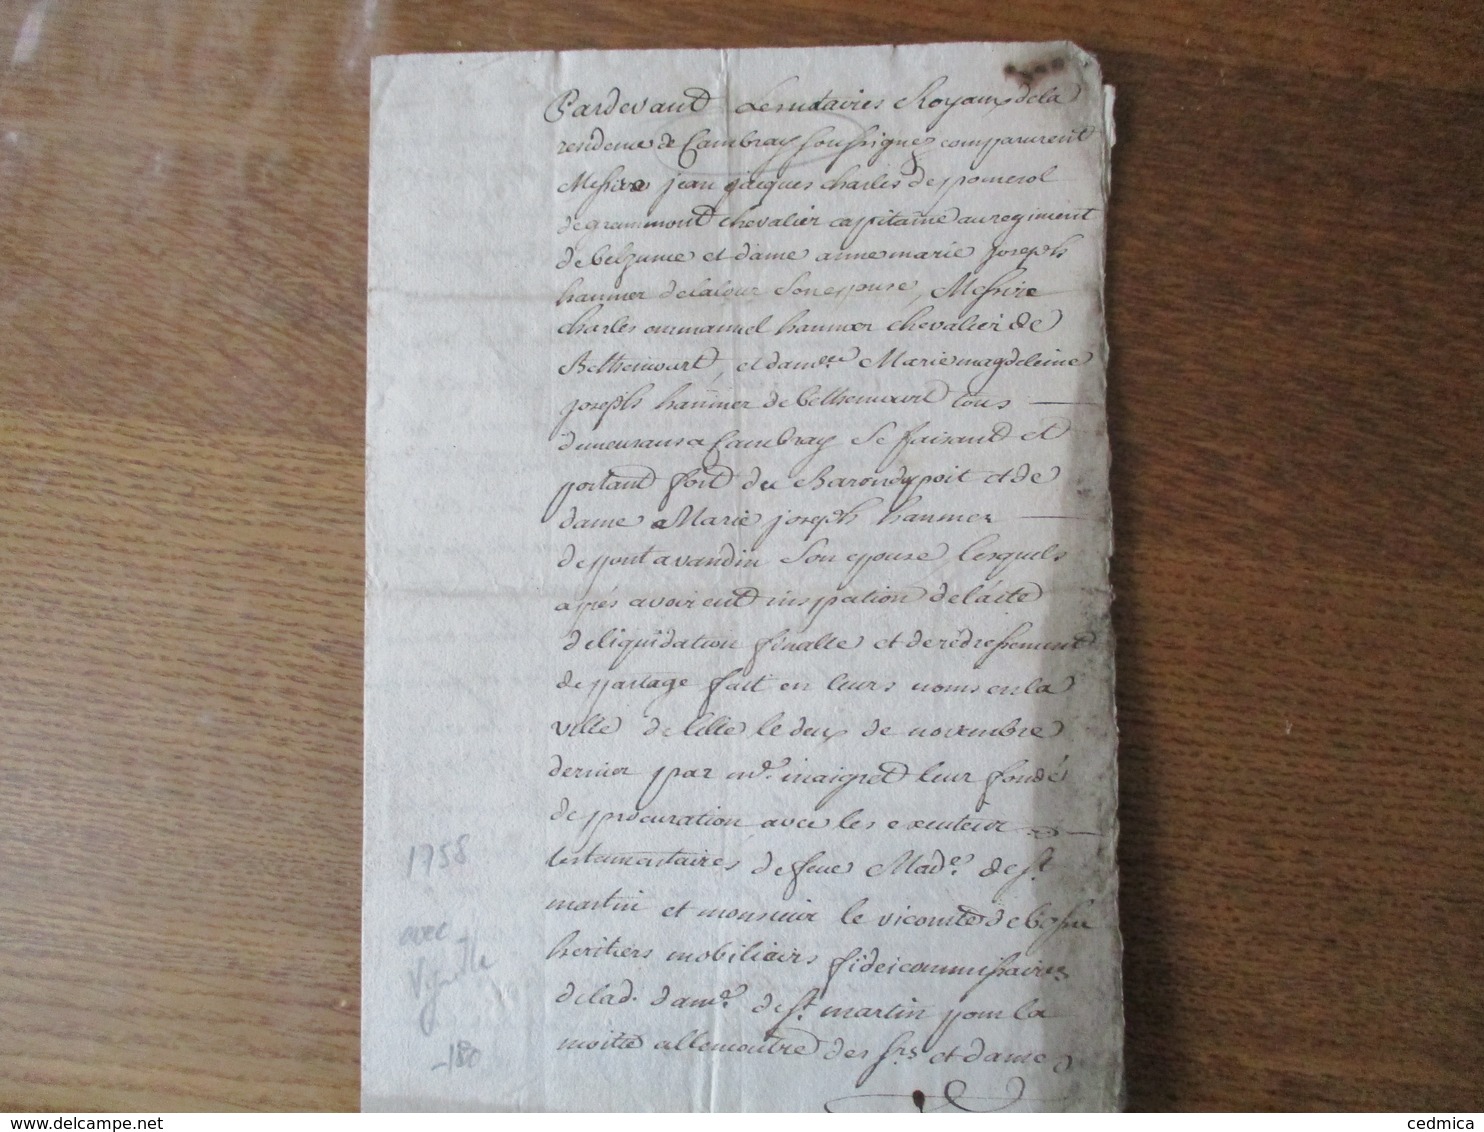 Pardevant Lesnotaires Royaux dela
residence de Cambray soussignés comparurent
Messire jean jacques charles de pomerol
de grammont chevalier capitaine au regiment
de belzunce et dame anne marie joseph
hanmer delalour son epouse, Messire
charles emmanuel hanmer chevalier de
Bethencourt, et dam.lle Marie magdeleine
joseph hanmer de bethencourt tous
demeurans a Cambray se faisant et
portant fort du Baron de et de
dame Marie joseph hanmer
de pont a vandin son epouse, lesquels
après avoir eut inspection de l'acte
de liquidation finalle et de redressement
de partage fait en leurs noms en la
ville de lille le deux de novembre
dernier par m.r leur fondé
de procuration avec les executeur
testamentaires de feue Mad.e de S.t
martin et monsieur le vicomte de
heritiers mobiliairs fideicommissaires
de lad. dam.e de S.t martin pour la
moitié allencontre des Srs et dames
1758
avec
Vignette
180
cedmica